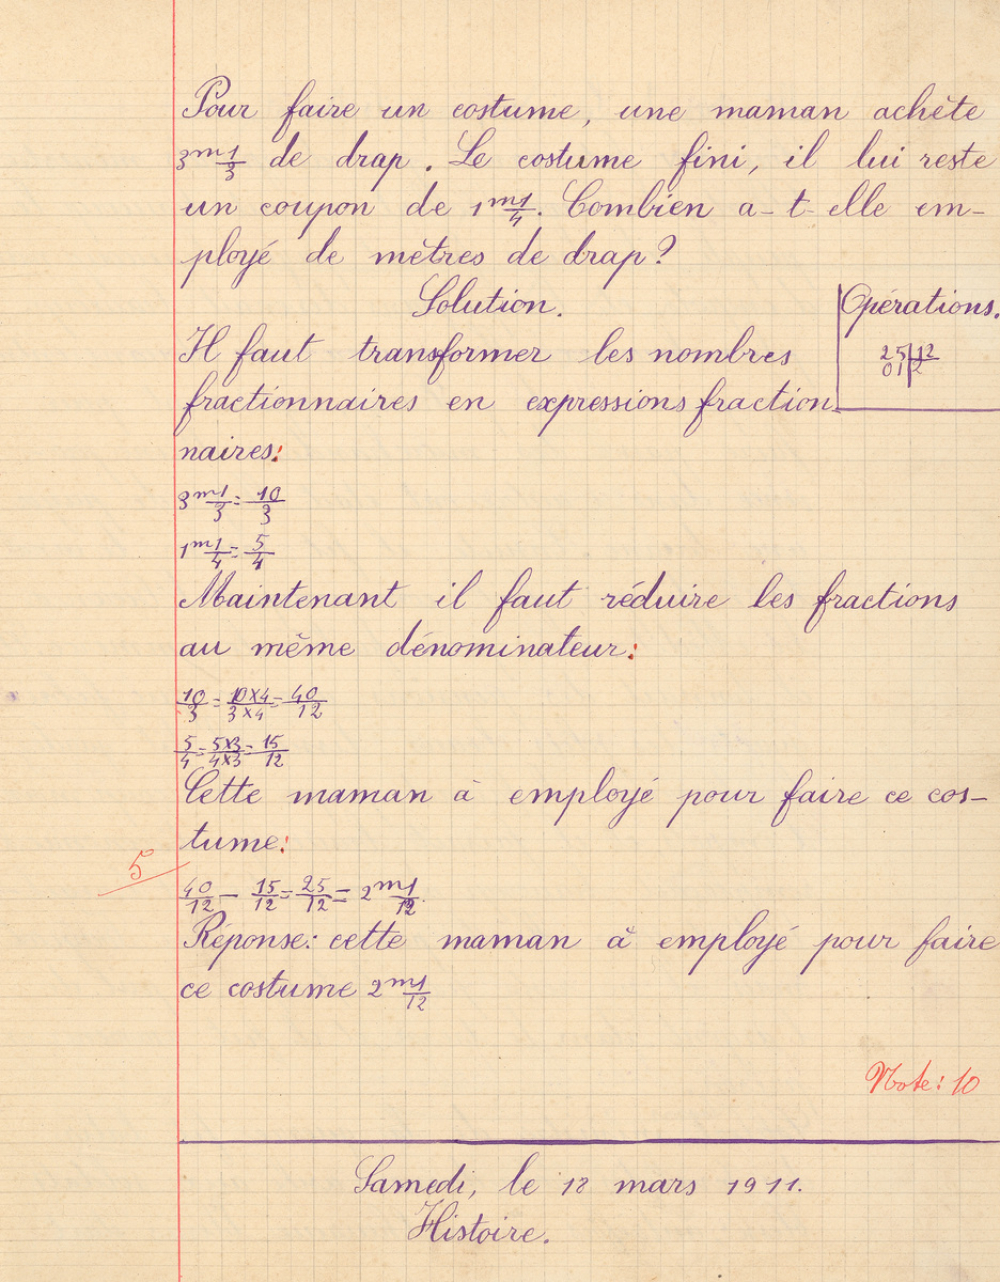 Pour faire un costume, une maman achète
3m 1/3 de drap. Le costume fini, il lui reste
un coupon de 1m 1/4. Combien a-t-elle em-
ployé de mètres de drap?
Solution.
Opérations.
25 | 12
01 | 2
Il faut transformer les nombres
fractionnaires en expressions fraction
naires:
3m 1/3 = 10/3
1m 1/4 = 5/4
Maintenant il faut réduire les fractions
au même dénominateur:
10/3 = 10x4/3x4 = 40/12
5/4 = 5x3/4x3 = 15/12
Cette maman à employé pour faire ce cos-
tume:
5
40/12 - 15/12 = 25/12 = 2m 1/12.
Réponse: cette maman à employé pour faire
ce costume 2m 1/12
Note: 10
Samedi, le 18 mars 1911.
Histoire.